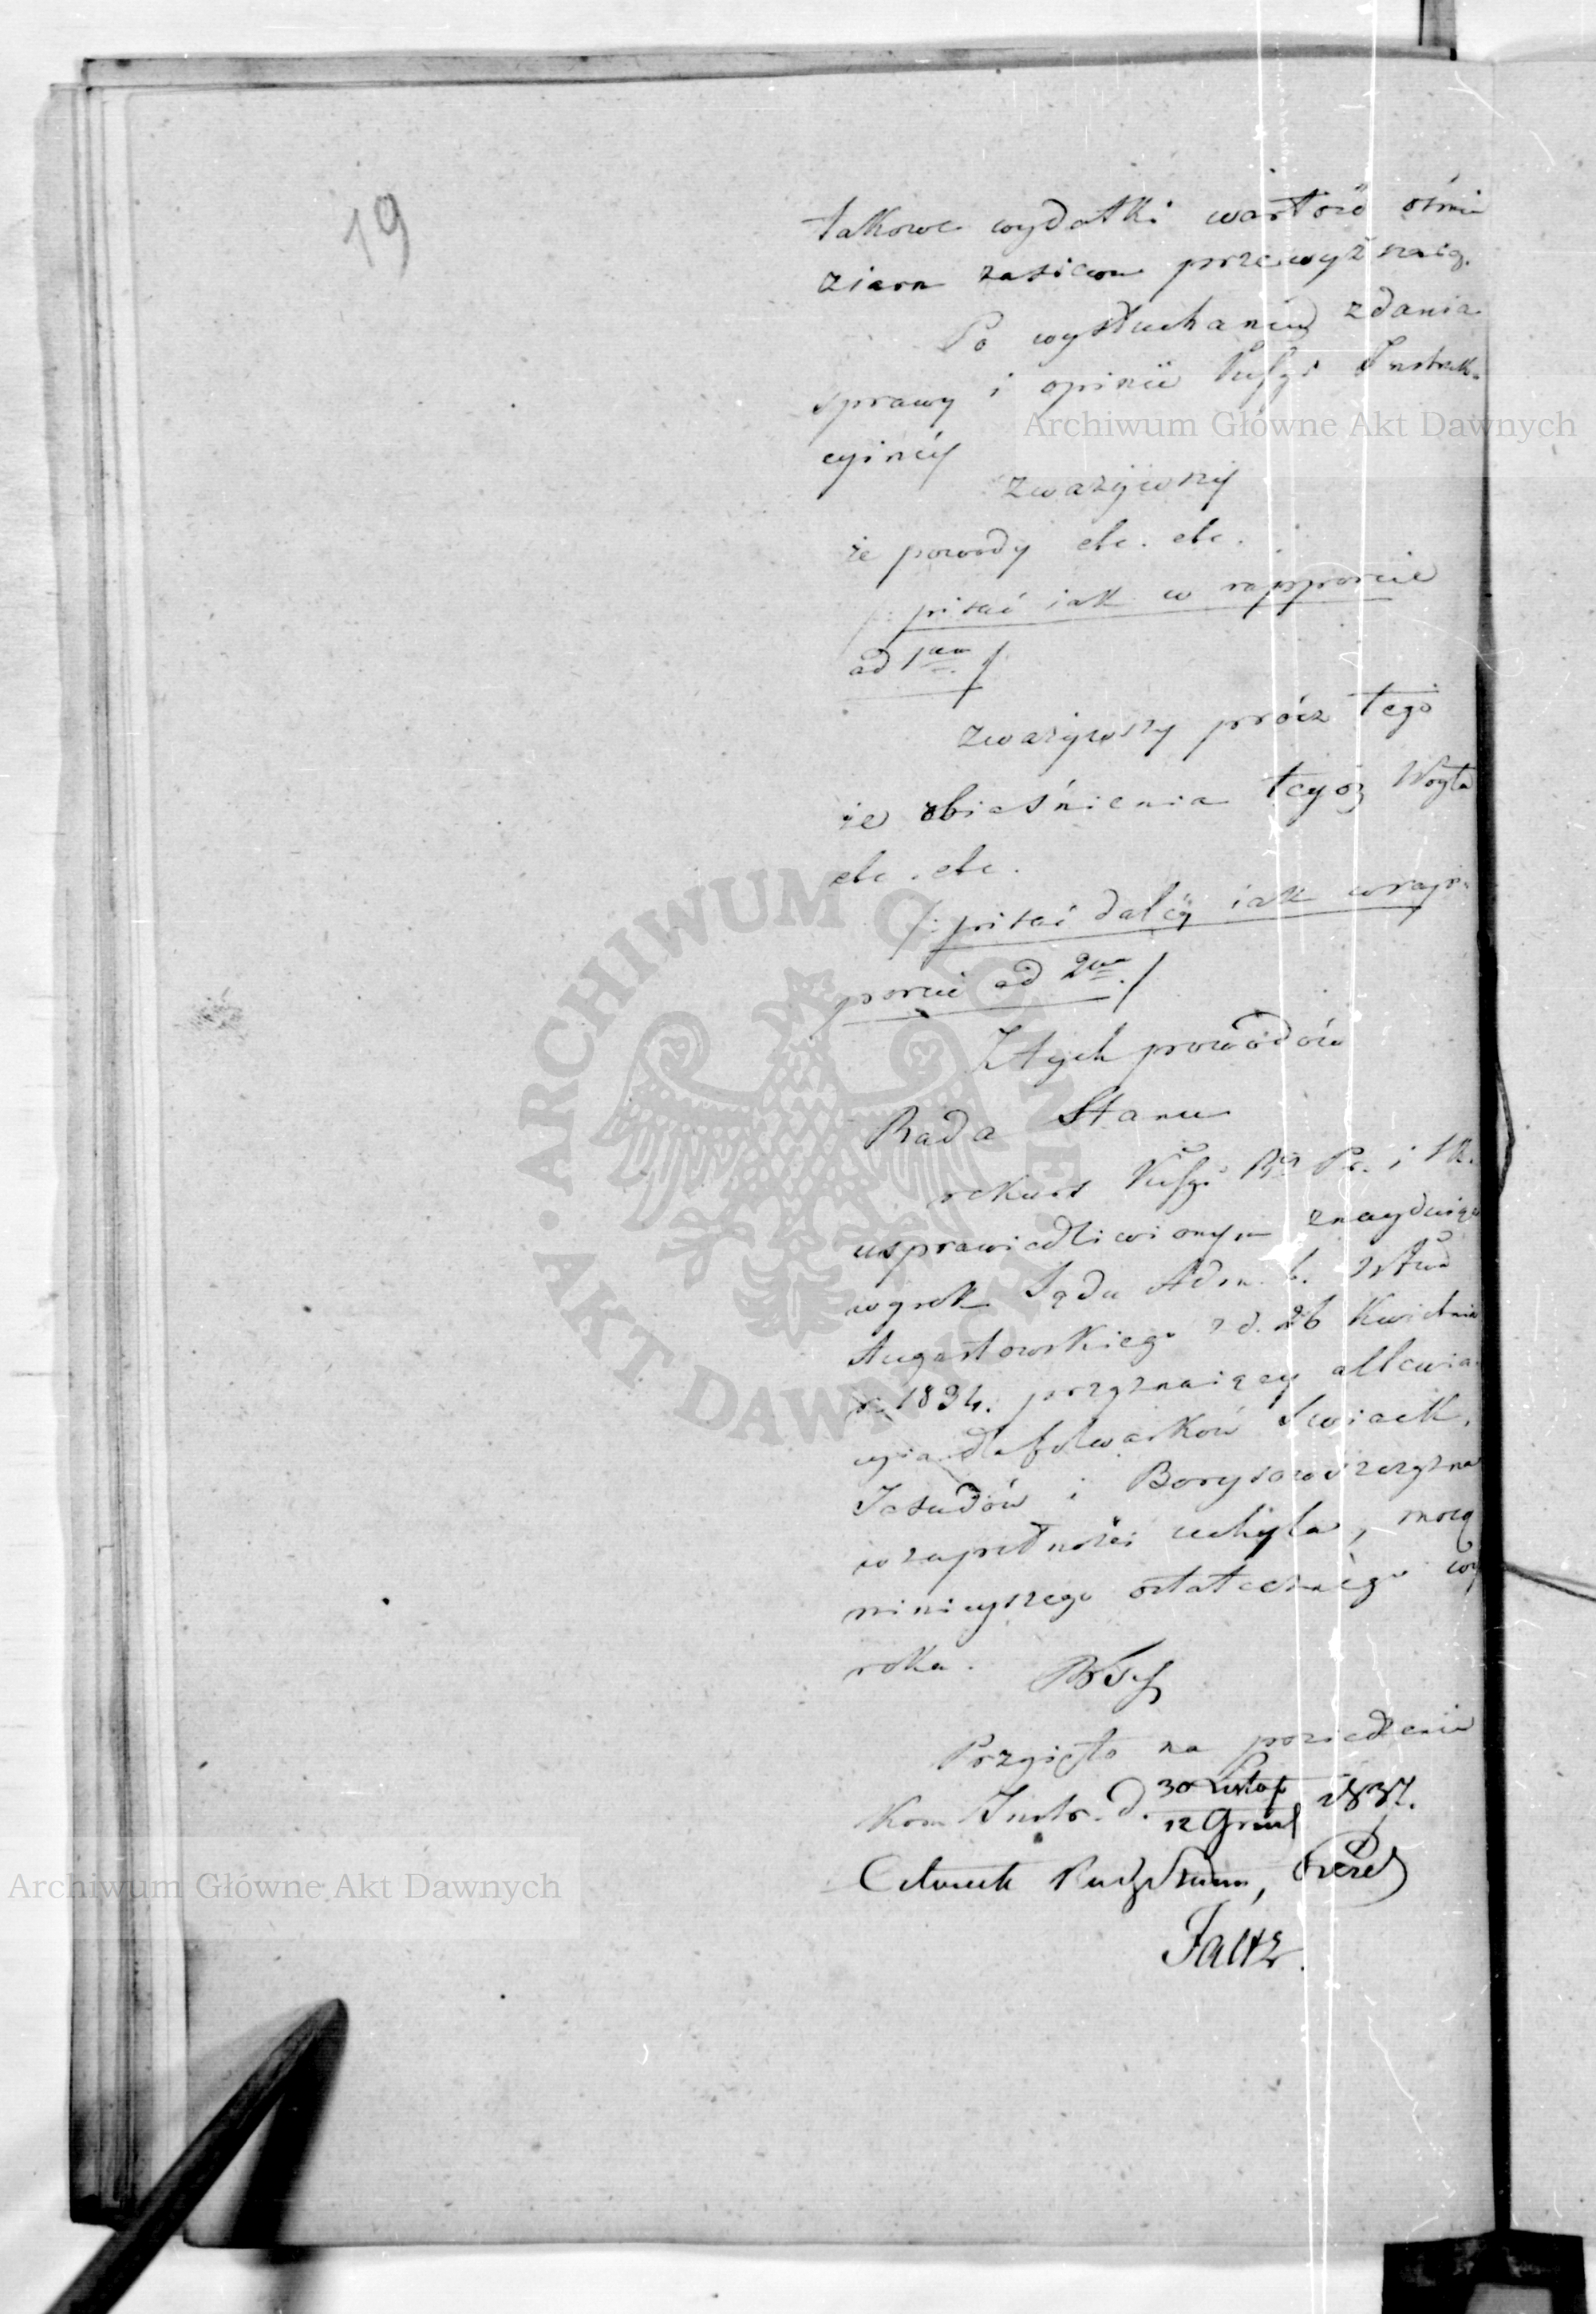 19
takowe wydatki wartość ośmiu
ziarn zasiewu przewyższaią.
Po wysłuchaniu zdania
sprawy i opinii Kommissyi Instruk-
cyinéy
zważywszy
że powody etc. etc.
/: pisać iak w rapporcie
ad 1um /
zważywszy prócz tego
że obiaśnienia tegoż Woyta
etc. etc.
/: pisać daléy iak w rap-
porcie ad 2um /
Z tych powodów
Rada Stanu
rekurs R. Pr. i Sk.
usprawiedliwionym znayduiąc
wyrok Sądu Adm. b. Wdztwa
Augustowskiego z d. 26 Kwietnia
r. 1834. przyznaiący allewia-
cyią dla folwarków Swiack,
Jatudów i Borysowszczyzna
w zupełności uchyla, mocą
ninieyszego ostatecznego wy
roku.
Przyięto na posiedzeniu
Kom Instr. d. 30 Listop 1837.
12 Grud
Członek Rady Stanu,
Faltz.
Archiwum Główne Akt Dawnych
ARCHIWUM GŁÓWNE · AKT DAWNYCH ·
Archiwum Główne Akt Dawnych